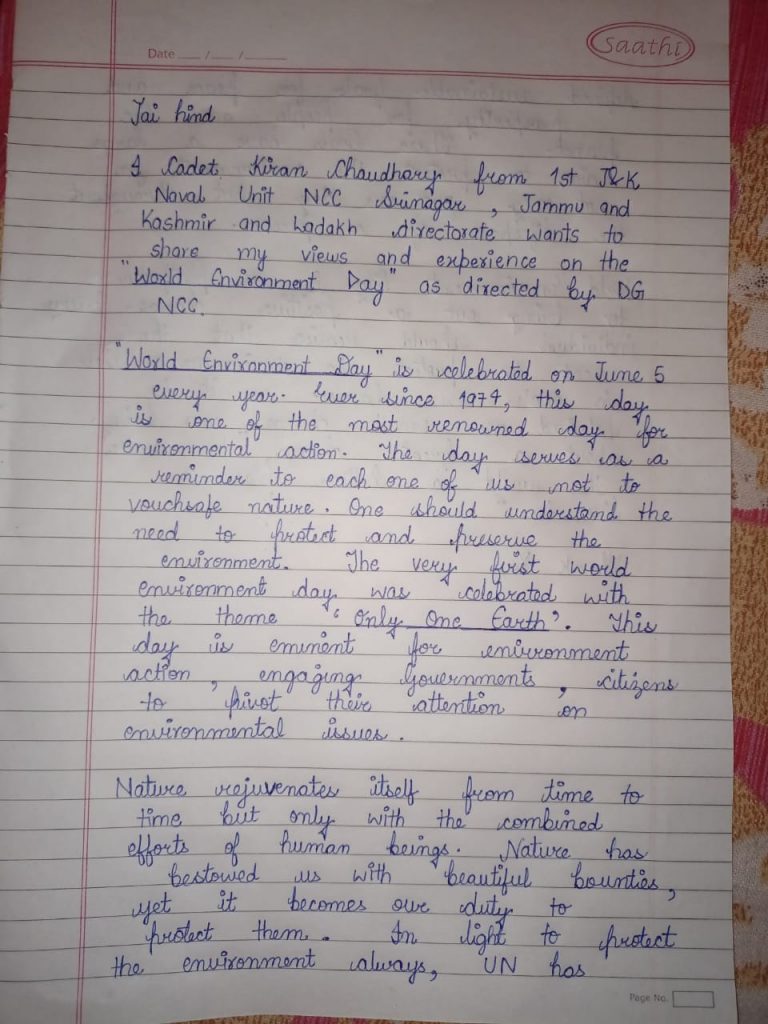 Saathi
Date ___/___/___
Jai hind
I Cadet Kiran Chaudhary from 1st J&K
Naval Unit NCC Srinagar, Jammu and
Kashmir and Ladakh directorate wants to
share my views and experience on the
"World Environment Day" as directed by DG
NCC.
"World Environment Day" is celebrated on June 5
every year. Ever since 1974, this day
is one of the most renowned day for
environmental action. The day serves as a
reminder to each one of us not to
vouchsafe nature. One should understand the
need to protect and preserve the
environment. The very first world
environment day was celebrated with
the theme 'Only One Earth'. This
day is eminent for environment
action, engaging Governments, citizens
to pivot their attention on
environmental issues.
Nature rejuvenates itself from time to
time but only with the combined
efforts of human beings. Nature has
bestowed us with beautiful bounties,
yet it becomes our duty to
protect them. In light to protect
the environment always, UN has
Page No.